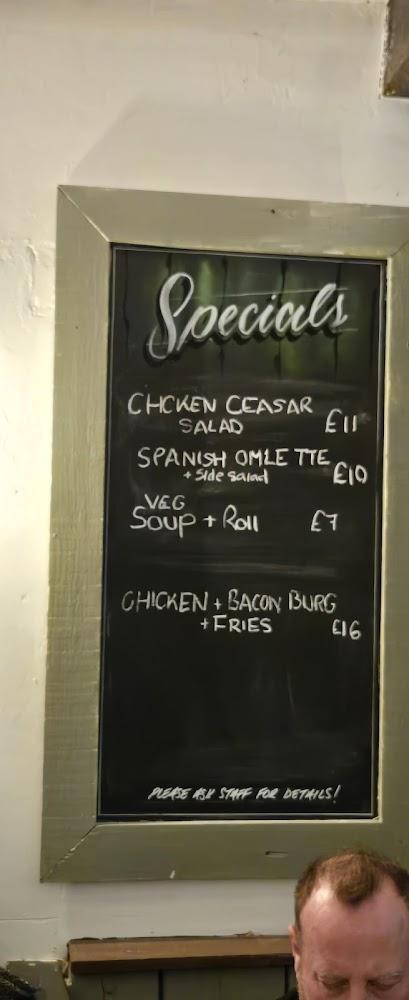 Specials
CHCKEN CEASAR
SALAD £11
SPANISH OMLETTE
+ Side Salad £10
VEG
Soup + Roll £7
CHICKEN + BACON BURG
+ FRIES £16
PLEASE ASK STAFF FOR DETAILS!